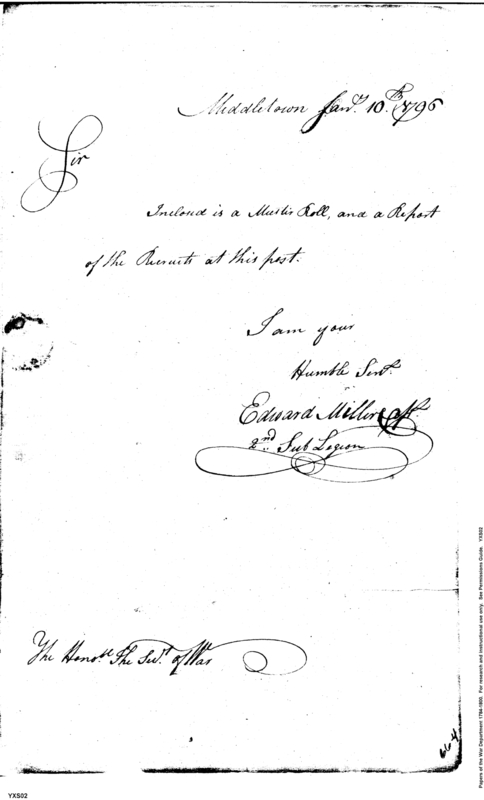 Middletown Jany. 10th. 1796
Sir
Incloud is a Muster Roll, and a Report
of the Recruits at this post.
I am your
Humble Servt.
Edward Miller Capt.
2nd Sub Legion
The Honoble. The Secy. of War
664
Papers of the War Department 1784-1800. For research and instructional use only. See Permissions Guide. YXS02
YXS02